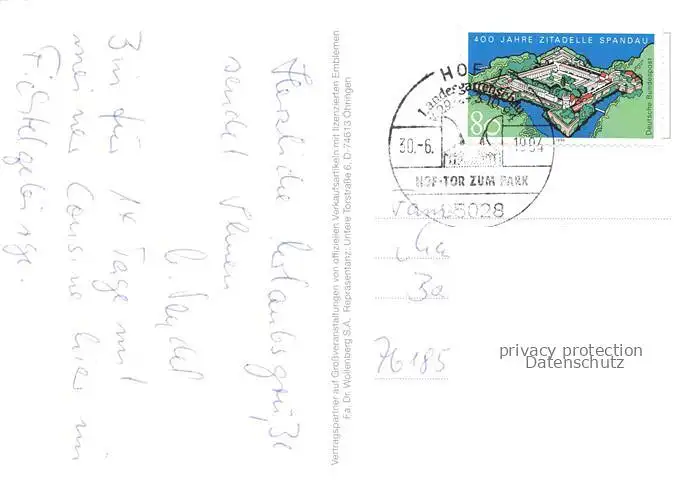 Herzliche Urlaubsgrüße
sendet Ihnen
Bin für 14 Tage mit
meiner Cousine hier im
Fichtelgebirge.
Vertragspartner auf Großveranstaltungen von offiziellen Verkaufsartikeln mit lizenzierten Emblemen.
Fa. Dr. Wollenberg S.A. Repräsentanz: Untere Torstraße 6, D-74613 Öhringen
400 JAHRE ZITADELLE SPANDAU
Deutsche Bundespost
80
HOF
1. Landesgartenschau
30.-6. 1994
HOF-TOR ZUM PARK
95028
Fam
Ka
76185
privacy protection
Datenschutz